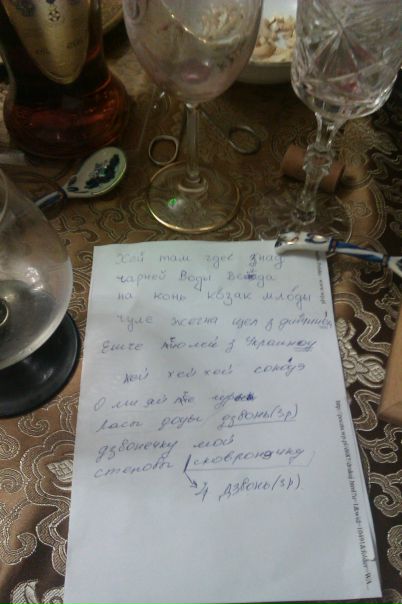 Хей там гдес знад
чарней Воды Вседа
на конь козак млоды
чуле жегна щел з дивчиной
Ешче з Украиноу
хей хей хей соколэ
О ми ай
ласы долы дзвонь(зр)
дзвонечку мой
степовы сковронэчку
дзвонь(зр)